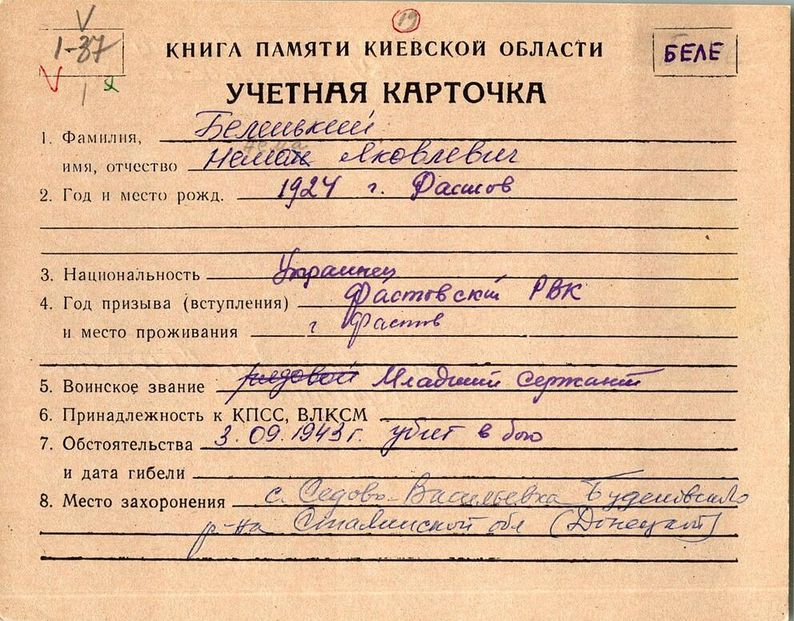 19
1-37
КНИГА ПАМЯТИ КИЕВСКОЙ ОБЛАСТИ
БЕЛЕ
УЧЕТНАЯ КАРТОЧКА
1. Фамилия, Беленький
имя, отчество Яковлевич
2. Год и место рожд. 1924 г. Фастов
3. Национальность Украинец
4. Год призыва (вступления) Фастовский РВК
и место проживания г Фастов
5. Воинское звание рядовой Младший сержант
6. Принадлежность к КПСС, ВЛКСМ
7. Обстоятельства 3.09.1943 г. убит в бою
и дата гибели
8. Место захоронения с. Седово-Васильевка Буденовского
р-на Сталинской обл (Донецкой)